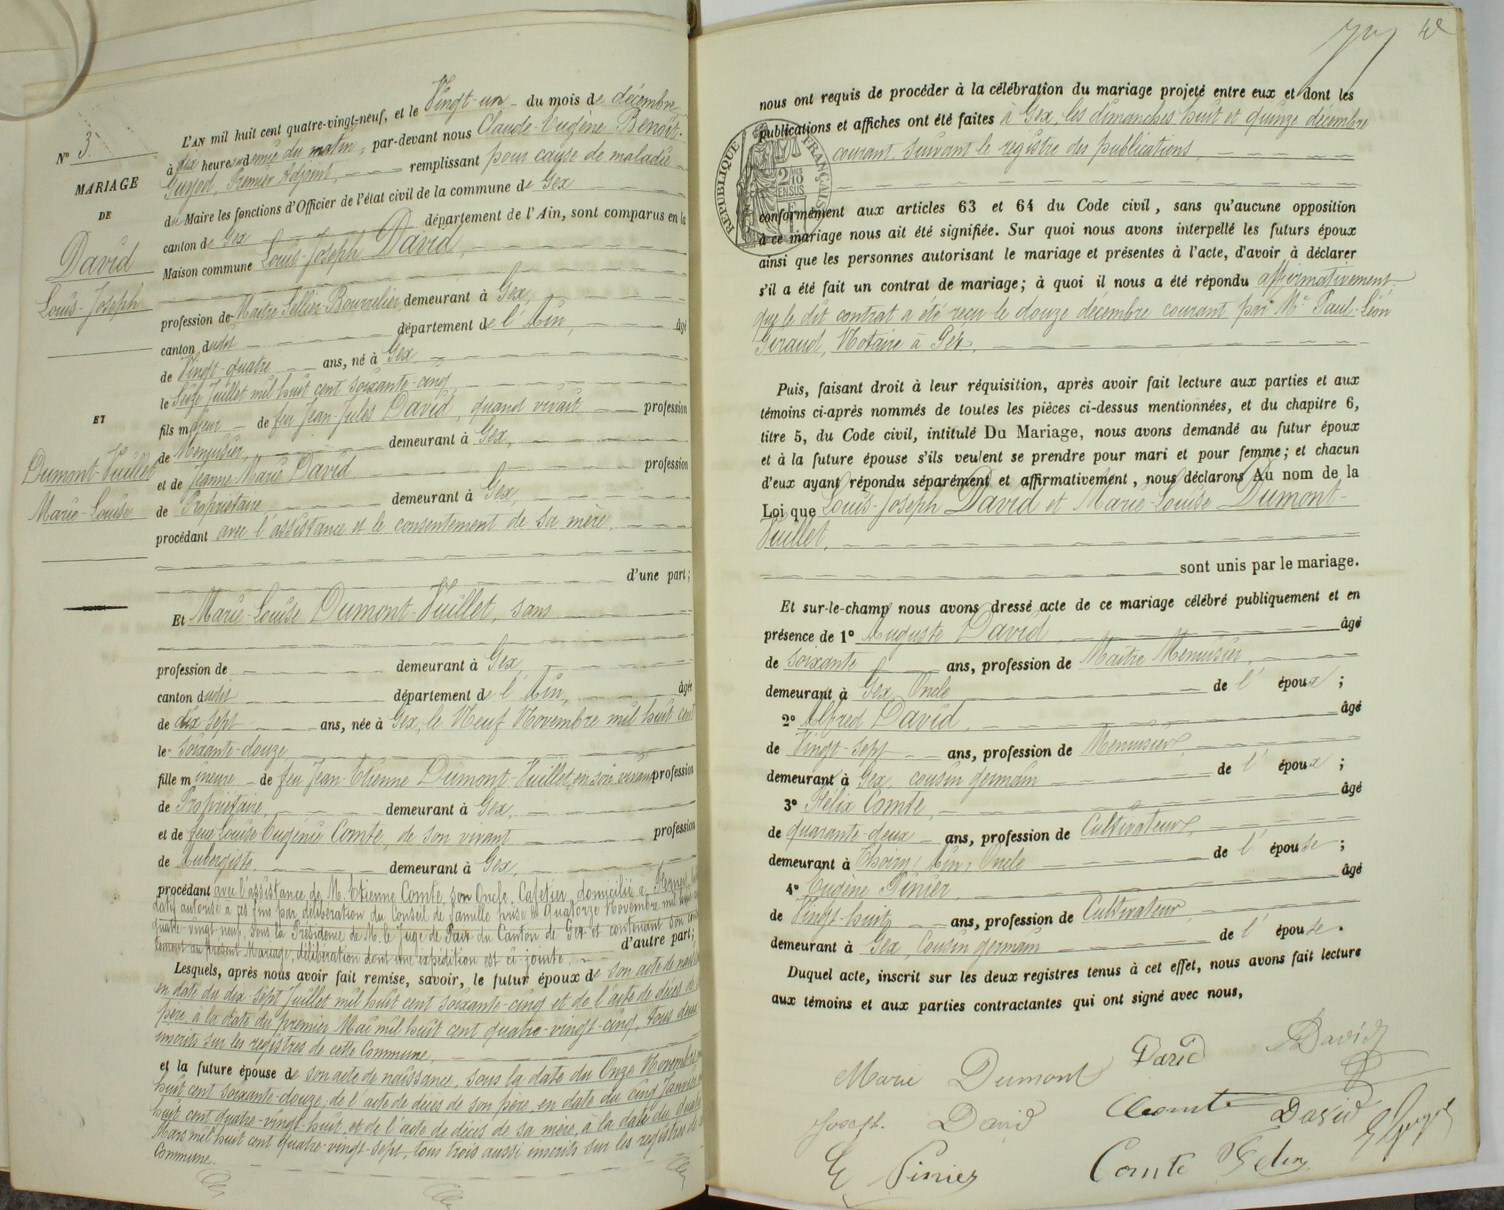 N° 3.
MARIAGE
DE
David
Louis-Joseph
ET
Dumont-Vuillet
Marie-Louise
L'AN mil huit cent quatre-vingt-neuf, et le Vingt-un du mois de décembre
à dix heures du matin, par-devant nous Claude-Eugène Benoît-
Guyod, Premier Adjoint, remplissant pour cause de maladie
du Maire les fonctions d'Officier de l'état civil de la commune de Gex
canton de Gex département de l'Ain, sont comparus en la
Maison commune Louis-Joseph David,
profession de Maître Sellier-Bourrelier demeurant à Gex,
canton dudit département de l'Ain, âgé
de Vingt-quatre ans, né à Gex
le Seize Juillet mil huit cent soixante-cinq
fils majeur de feu Jean-Jules David, quand vivait profession
de Menuisier demeurant à Gex,
et de Jeanne Marie David profession
de Propriétaire demeurant à Gex,
procédant avec l'assistance et le consentement de sa mère
d'une part;
Et Marie-Louise Dumont-Vuillet, sans
profession de demeurant à Gex,
canton dudit département de l'Ain, âgée
de dix sept ans, née à Gex, le Neuf Novembre mil huit cent
le soixante-douze
fille mineure de feu Jean-Etienne Dumont-Vuillet, en son vivant profession
de Propriétaire, demeurant à Gex,
et de feue Louise-Eugénie Comte, de son vivant profession
de Aubergiste demeurant à Gex,
procédant avec l'assistance de M. Etienne Comte, son Oncle, Cafetier, domicilié à
datif autorisé à ces fins par délibération du Conseil de famille prise le Quatorze Novembre mil huit cent
quatre-vingt-neuf, sous la Présidence de M. le Juge de Paix du Canton de Gex et contenant son
au présent Mariage, délibération dont une expédition est ci-jointe d'autre part;
Lesquels, après nous avoir fait remise, savoir, le futur époux de son acte de naissance
en date du dix sept Juillet mil huit cent soixante-cinq et de l'acte de décès de
père, à la date du premier Mai mil huit cent quatre-vingt-cinq, tous deux
inscrits sur les registres de cette Commune.
et la future épouse de son acte de naissance, sous la date du Onze Novembre
huit cent soixante-douze; de l'acte de décès de son père, en date du cinq Janvier
huit cent quatre-vingt-huit et de l'acte de décès de sa mère, à la date du
Mars mil huit cent quatre-vingt-sept, tous trois aussi inscrits sur les registres de
Commune.
nous ont requis de procéder à la célébration du mariage projeté entre eux et dont les
publications et affiches ont été faites à Gex, les dimanches huit et quinze décembre
courant suivant le registre des publications,
RÉPUBLIQUE FRANÇAISE
conformément aux articles 63 et 64 du Code civil, sans qu'aucune opposition
à ce mariage nous ait été signifiée. Sur quoi nous avons interpellé les futurs époux
ainsi que les personnes autorisant le mariage et présentes à l'acte, d'avoir à déclarer
s'il a été fait un contrat de mariage; à quoi il nous a été répondu affirmativement
que le dit contrat a été reçu le douze décembre courant par Me Paul-Léon
Giraud, Notaire à Gex.
Puis, faisant droit à leur réquisition, après avoir fait lecture aux parties et aux
témoins ci-après nommés de toutes les pièces ci-dessus mentionnées, et du chapitre 6,
titre 5, du Code civil, intitulé Du Mariage, nous avons demandé au futur époux
et à la future épouse s'ils veulent se prendre pour mari et pour femme; et chacun
d'eux ayant répondu séparément et affirmativement, nous déclarons Au nom de la
Loi que Louis-Joseph David et Marie-Louise Dumont-
Vuillet,
sont unis par le mariage.
Et sur-le-champ nous avons dressé acte de ce mariage célébré publiquement et en
présence de 1° Auguste David âgé
de soixante ans, profession de Maître Menuisier,
demeurant à Gex Oncle de l'époux;
2° Alfred David, âgé
de Vingt-sept ans, profession de Menuisier,
demeurant à Gex, cousin germain de l'époux;
3° Félix Comte, âgé
de quarante-deux ans, profession de Cultivateur,
demeurant à Thoiry (Ain) Oncle de l'épouse;
4° Eugène Pinier âgé
de Vingt-huit ans, profession de Cultivateur,
demeurant à Gex, Cousin germain de l'épouse.
Duquel acte, inscrit sur les deux registres tenus à cet effet, nous avons fait lecture
aux témoins et aux parties contractantes qui ont signé avec nous,
Marie Dumont David David
Joseph David Comte David
E Pinier Comte Félix